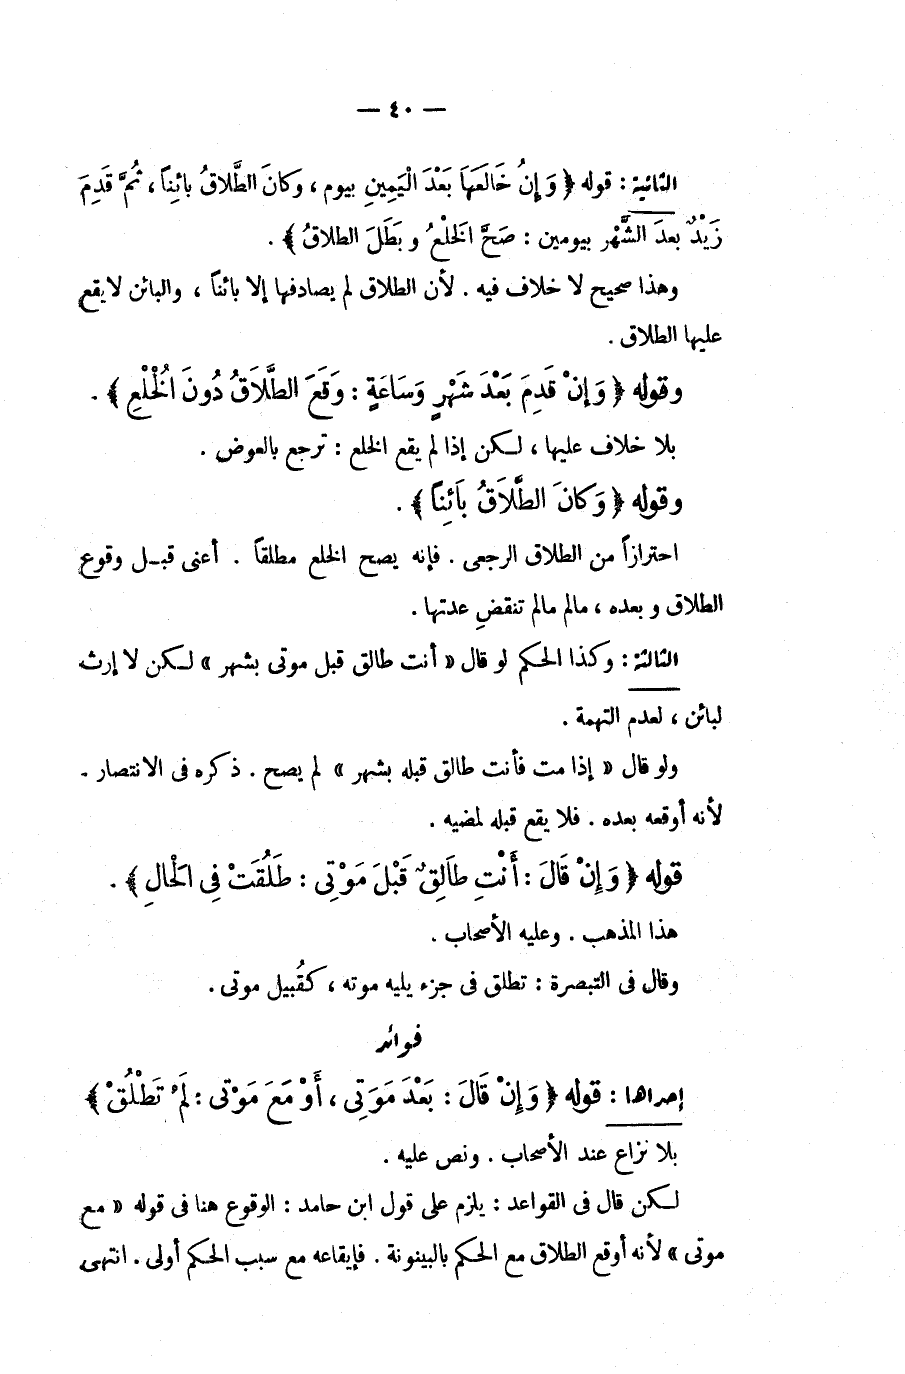 — ٤٠ —
الثانية : قوله ﴿ وَإِنْ خَالَعَهَا بَعْدَ الْيَمِينِ بيوم ، وَكانَ الطَّلاَقُ بائِناً ، ثُمَّ قَدِمَ
زَيْدٌ بعدَ الشَّهْرِ بيومين : صَحَّ الخلْعُ و بَطَلَ الطلاقُ ﴾ .
وهذا صحيح لا خلاف فيه . لأن الطلاق لم يصادفها إلا بائناً ، والبائن لا يقع
عليها الطلاق .
وقوله ﴿ وَإِنْ قَدِمَ بَعْدَ شَهْرٍ وَسَاعَةٍ : وَقَعَ الطَّلَاقُ دُونَ الُخْلْعِ ﴾ .
بلا خلاف عليها ، لـكن إذا لم يقع الخلع : ترجع بالعوض .
وقوله ﴿ وَكَانَ الطَّلَاقُ بَائِناً ﴾ .
احترازاً من الطلاق الرجعى . فإنه يصح الخلع مطلقاً . أعنى قبـل وقوع
الطلاق و بعده ، مالم مالم تنقض عدتها .
الثالثة : وكذا الحـكم لو قال « أنت طالق قبل موتى بشهر » لـكن لا إرث
لبائن ، لعدم التهمة .
ولو قال « إذا مت فأنت طالق قبله بشهر » لم يصح . ذكره فى الانتصار .
لأنه أوقعه بعده . فلا يقع قبله لمضيه .
قوله ﴿ وَإِنْ قَالَ : أَنْتِ طَالِقٌ قَبْلَ مَوْتِى : طَلُقَتْ فِى الَحْالِ ﴾ .
هذا المذهب . وعليه الأصحاب .
وقال فى التبصرة : تطلق فى جزء يليه موته ، كقُبيل موتى .
فوائد
إحداها : قوله ﴿ وَإِنْ قَالَ : بَعْدَ مَوَتِى ، أَوْ مَعَ مَوْتى : لَمْ تَطْلُقْ ﴾
بلا نزاع عند الأصحاب . ونص عليه .
لـكن قال فى القواعد : يلزم على قول ابن حامد : الوقوع هنا فى قوله « مع
موتى » لأنه أوقع الطلاق مع الحـكم بالبينونة . فإيقاعه مع سبب الحـكم أولى . انتهى